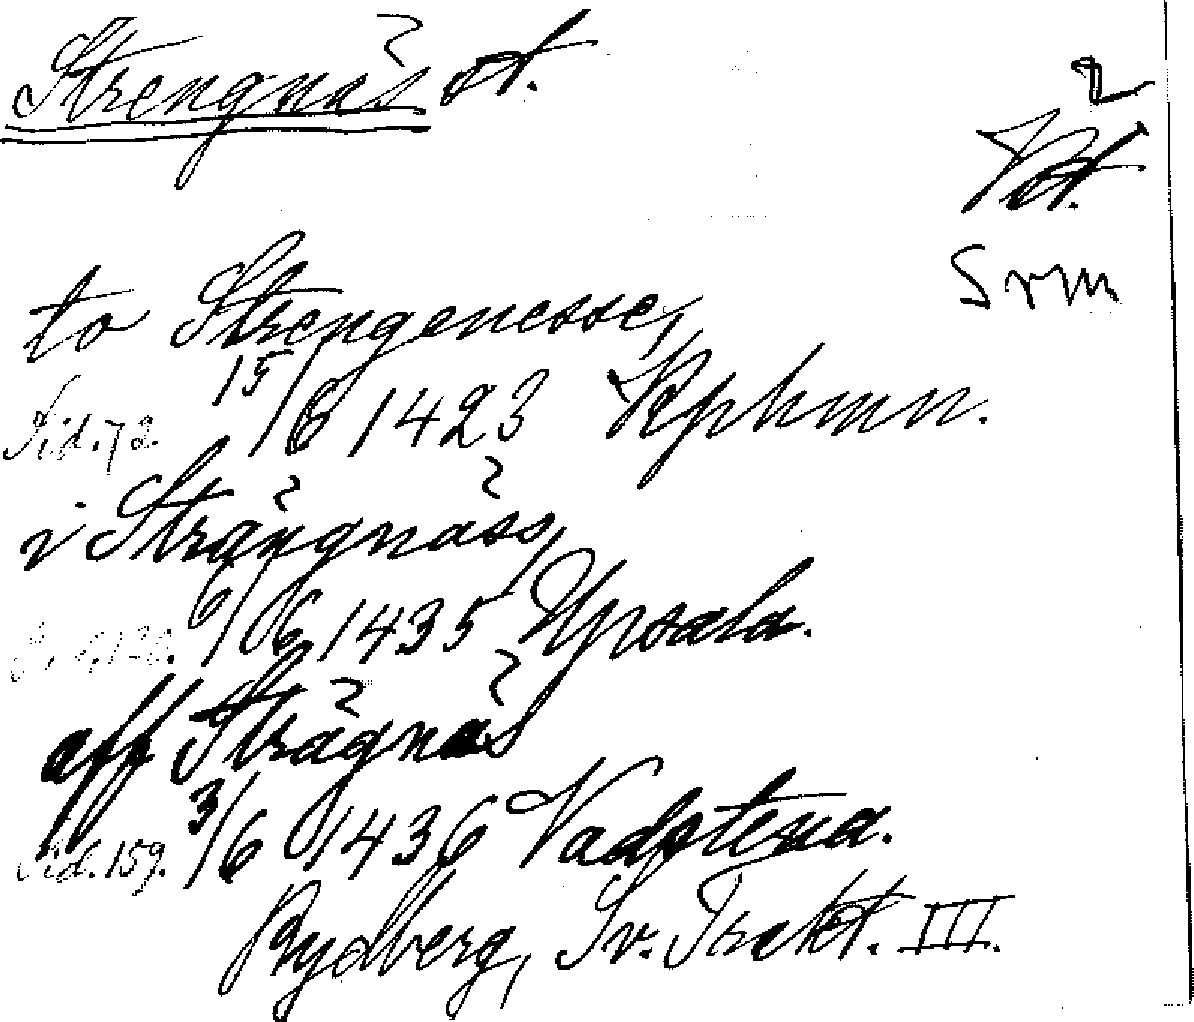 Strengnäs st.
2
Kst.
Srm
to Strengenesse,
Sid. 72. 15/6 1423 Kphmn.
i Strängnäss,
6/6 1435 Upsala.
aff Strägnäs
Sid. 159. 3/6 1436 Vadstena.
Rydberg, Sv. Trakt. III.